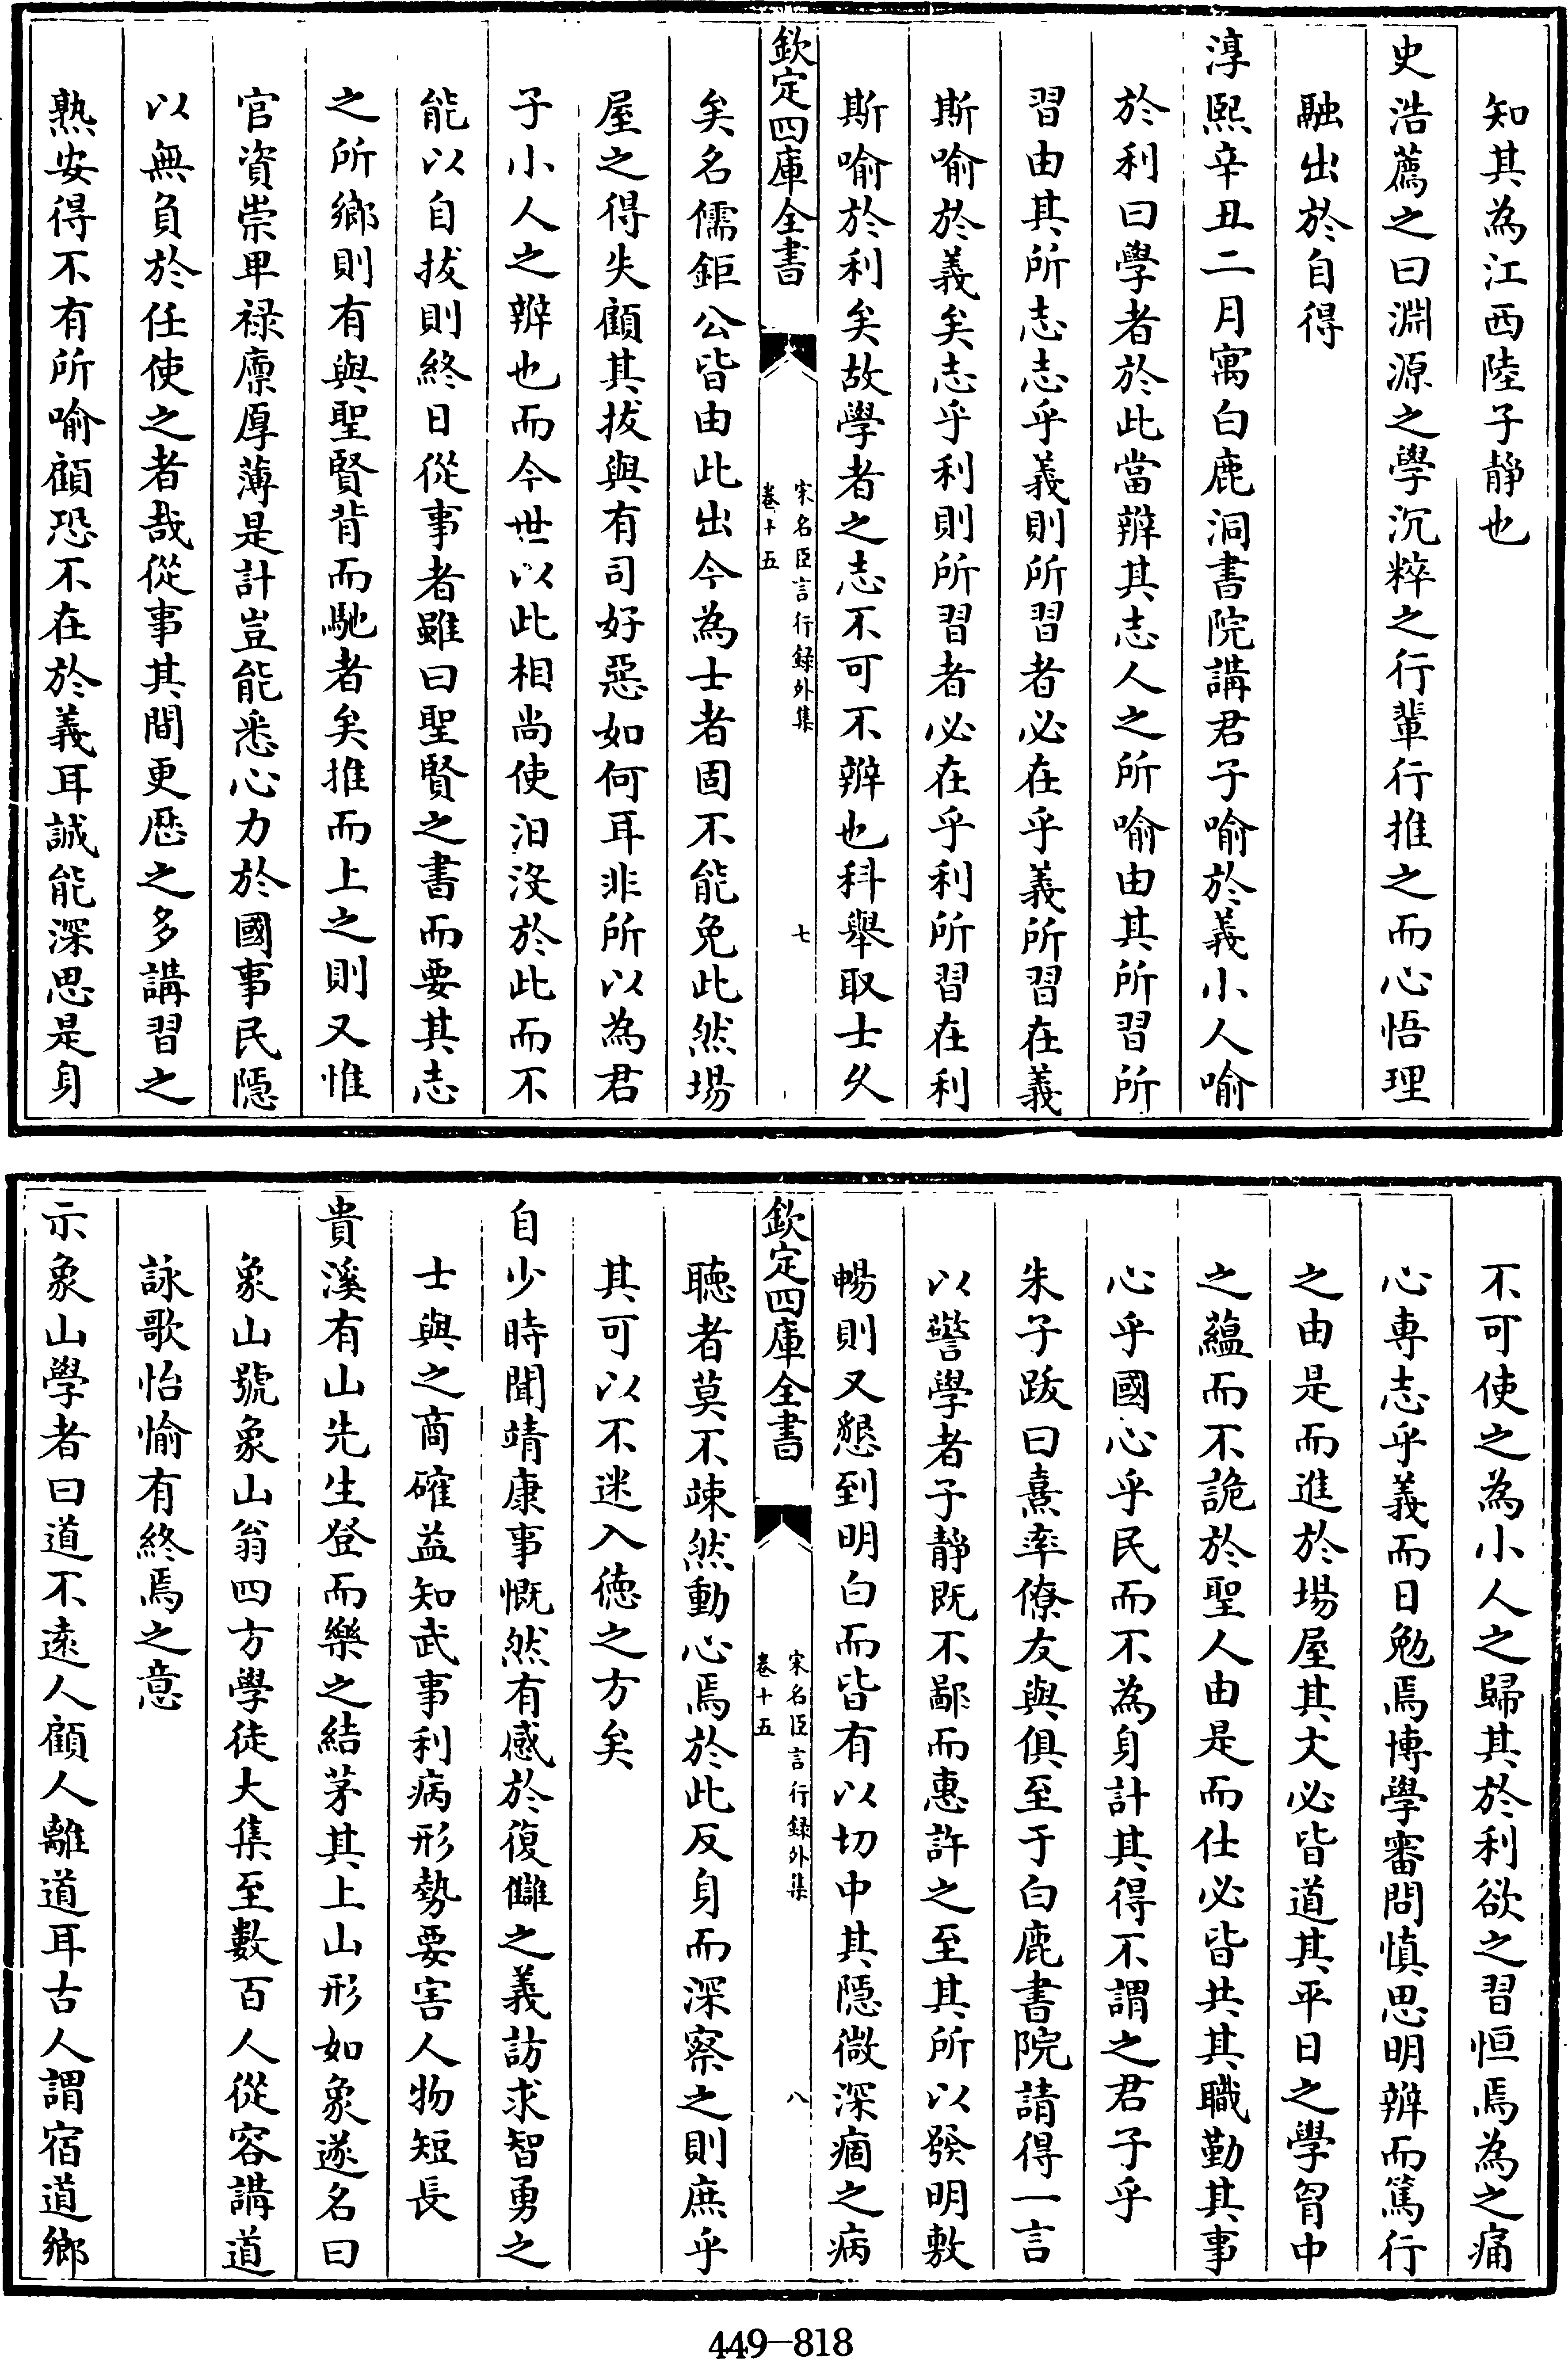 知其為江西陸子靜也
史浩薦之曰淵源之學沉粹之行輩行推之而心悟理
融出於自得
淳熙辛丑二月寓白鹿洞書院講君子喻於義小人喻
於利曰學者於此當辨其志人之所喻由其所習所
習由其所志志乎義則所習者必在乎義所習在義
斯喻於義矣志乎利則所習者必在乎利所習在利
斯喻於利矣故學者之志不可不辨也科舉取士久
欽定四庫全書
宋名臣言行録外集
卷十五
七
矣名儒鉅公皆由此出今為士者固不能免此然場
屋之得失顧其拔與有司好惡如何耳非所以為君
子小人之辨也而今世以此相尚使汨沒於此而不
能以自拔則終日從事者雖曰聖賢之書而要其志
之所鄉則有與聖賢背而馳者矣推而上之則又惟
官資崇卑禄廪厚薄是計豈能悉心力於國事民隱
以無負於任使之者哉從事其間更歴之多講習之
熟安得不有所喻顧恐不在於義耳誠能深思是身
不可使之為小人之歸其於利欲之習恒焉為之痛
心專志乎義而日勉焉博學審問慎思明辨而篤行
之由是而進於場屋其文必皆道其平日之學胷中
之蘊而不詭於聖人由是而仕必皆共其職勤其事
心乎國心乎民而不為身計其得不謂之君子乎
朱子跋曰熹率僚友與俱至于白鹿書院請得一言
以警學者子靜既不鄙而惠許之至其所以發明敷
暢則又懇到明白而皆有以切中其隱微深痼之病
欽定四庫全書
宋名臣言行録外集
卷十五
八
聴者莫不竦然動心焉於此反身而深察之則庶乎
其可以不迷入徳之方矣
自少時聞靖康事慨然有感於復讎之義訪求智勇之
士與之商確益知武事利病形勢要害人物短長
貴溪有山先生登而樂之結茅其上山形如象遂名曰
象山號象山翁四方學徒大集至數百人從容講道
詠歌怡愉有終焉之意
示象山學者曰道不逺人顧人離道耳古人謂宿道鄉
449-818